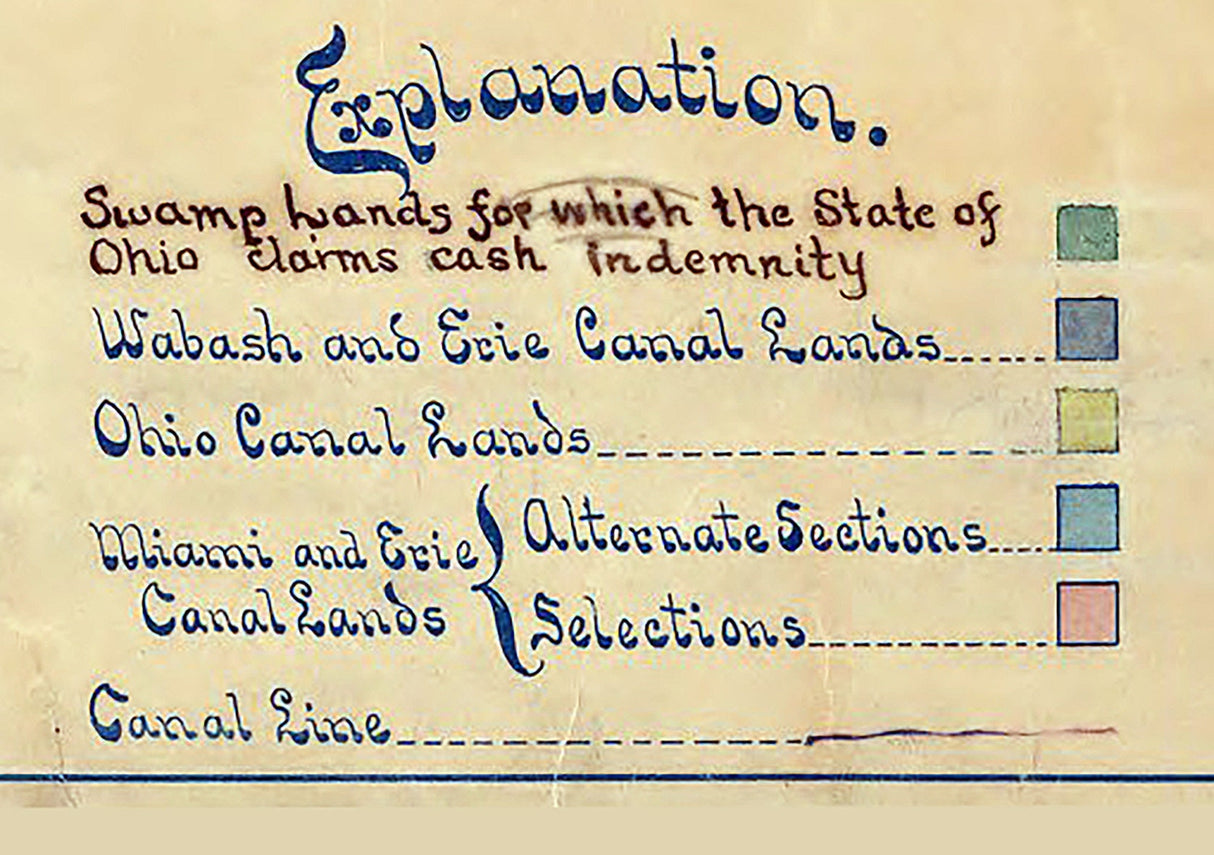 Explanation.
Swamp Lands for which the State of
Ohio claims cash indemnity
Wabash and Erie Canal Lands
Ohio Canal Lands
Miami and Erie
Canal Lands
Alternate Sections
Selections
Canal Line